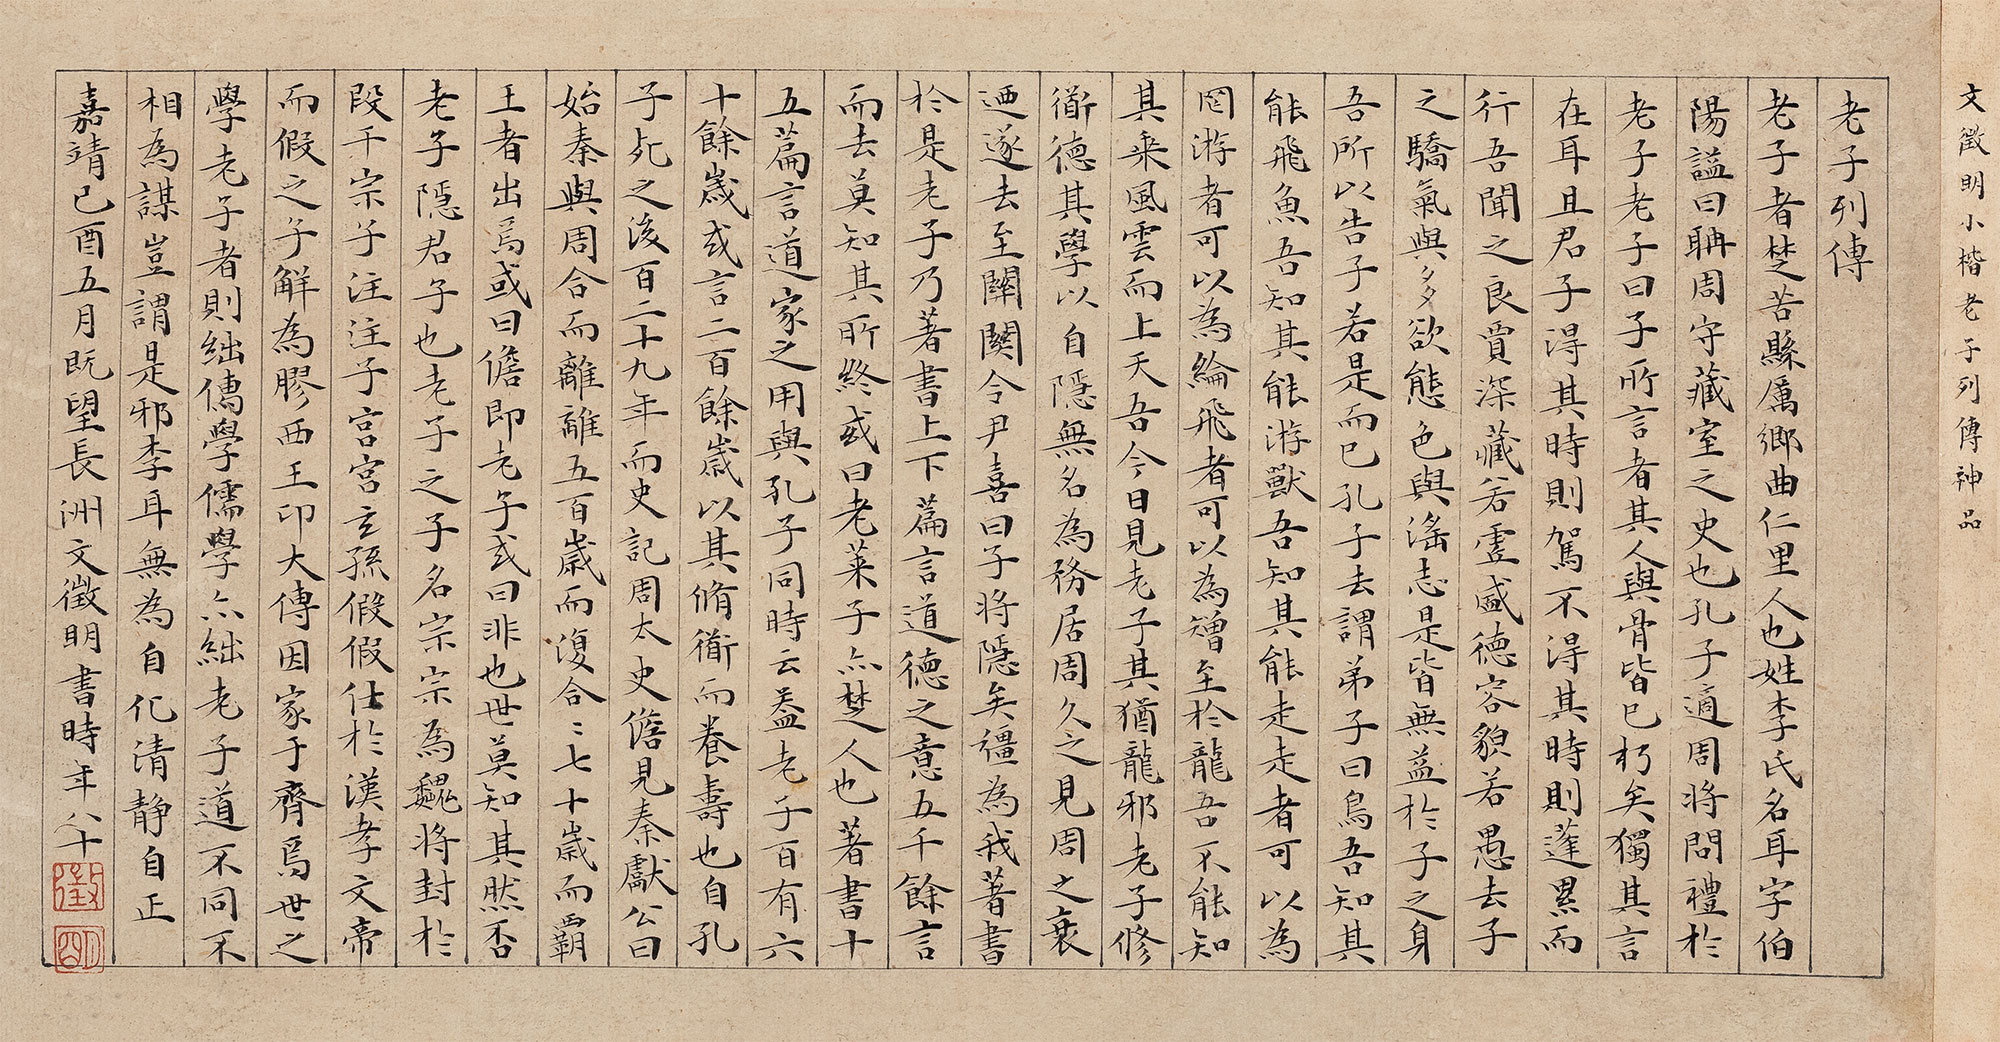 文徵明小楷老子列傳神品
老子列傳
老子者楚苦縣厲鄉曲仁里人也姓李氏名耳字伯
陽謚曰聃周守藏室之史也孔子適周將問禮於
老子老子曰子所言者其人與骨皆已朽矣獨其言
在耳且君子得其時則駕不得其時則蓬累而
行吾聞之良賈深藏若虛盛德容貌若愚去子
之驕氣與多欲態色與淫志是皆無益於子之身
吾所以告子若是而已孔子去謂弟子曰鳥吾知其
能飛魚吾知其能游獸吾知其能走走者可以為
罔游者可以為綸飛者可以為矰至於龍吾不能知
其乘風雲而上天吾今日見老子其猶龍邪老子修
衟德其學以自隱無名為務居周久之見周之衰
迺遂去至關關令尹喜曰子將隱矣彊為我著書
於是老子乃著書上下篇言道德之意五千餘言
而去莫知其所終或曰老萊子亦楚人也著書十
五篇言道家之用與孔子同時云葢老子百有六
十餘歲或言二百餘歲以其脩衟而養壽也自孔
子死之後百二十九年而史記周太史儋見秦獻公曰
始秦與周合而離離五百歲而復合〻七十歲而霸
王者出焉或曰儋即老子或曰非也世莫知其然否
老子隱君子也老子之子名宗宗為魏將封於
段干宗子注注子宮宮玄孫假假仕於漢孝文帝
而假之子解為膠西王卬大傅因家于齊焉世之
學老子者則絀儒學儒學亦絀老子道不同不
相為謀豈謂是邪李耳無為自化清靜自正
嘉靖己酉五月既望長洲文徵明書時年八十
徵
明